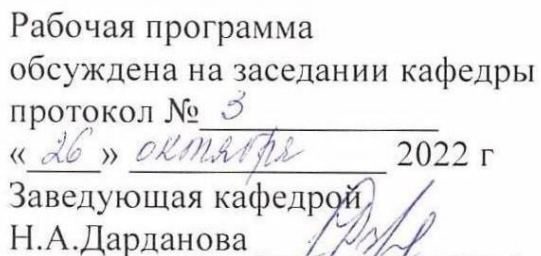 Рабочая программа
обсуждена на заседании кафедры
протокол № 3
« 26 » октября 2022 г
Заведующая кафедрой
Н.А.Дарданова